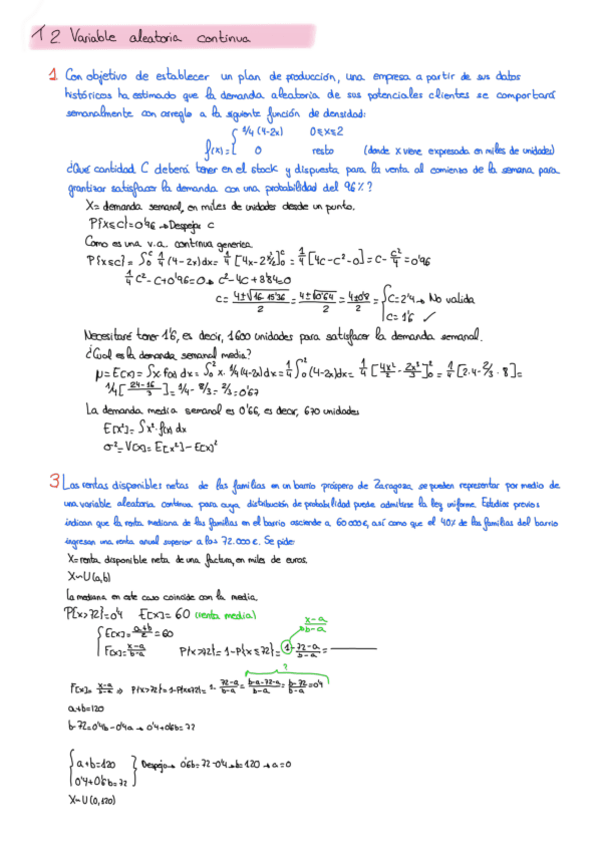 T2 Variable aleatoria continua
1 Con objetivo de establecer un plan de producción, una empresa a partir de sus datos
históricos ha estimado que la demanda aleatoria de sus potenciales clientes se comportará
semanalmente con arreglo a la siguiente función de densidad:
f(x)={ 1/4 (4-2x) 0≤x≤2
0 resto (donde x viene expresada en miles de unidades)
¿Qué cantidad C deberá tener en el stock y dispuesta para la venta al comienzo de la semana para
grantizar satisfacer la demanda con una probabilidad del 96%?
X= demanda semanal, en miles de unidades desde un punto.
P{x≤c}=0'96 → Despejar c
Como es una v.a. continua generica.
P{x≤c}= ∫₀ᶜ 1/4 (4-2x)dx= 1/4 [4x-2x²/2]₀ᶜ= 1/4 [4c-c²-0]= c- c²/4 =0'96
1/4 c²-c+0'96=0 → c²-4c+3'84=0
c= 4±√16-15'36/2 = 4±√0'64/2 = 4±0'8/2 = { c=2'4 → No valida
c=1'6 ✓
Necesitaré tener 1'6, es decir, 1600 unidades para satisfacer la demanda semanal.
¿Cual es la demanda semanal media?
μ=E[x]= ∫x f(x) dx= ∫₀² x· 1/4 (4-2x)dx= 1/4 ∫₀² (4-2x)dx= 1/4 [4x²/2 - 2x³/3]₀²= 1/4 [2·4- 2/3 · 8]=
1/4 [24-16/3]= 1/4· 8/3= 2/3=0'67
La demanda media semanal es 0'66, es decir, 670 unidades
E[x²]= ∫x² f(x) dx
σ²=V(x)= E[x²]-E[x]²
3 Las rentas disponibles netas de las familias en un barrio próspero de Zaragoza, se pueden representar por medio de
una variable aleatoria continua para cuya distribución de probabilidad puede admitirse la ley uniforme. Estudios previos
indican que la renta mediana de las familias en el barrio asciende a 60 000€, así como que el 40% de las familias del barrio
ingresan una renta anual superior a los 72.000€. Se pide:
X= renta disponible neta de una factura, en miles de euros.
X~U(a,b)
La mediana en este caso coincide con la media.
P{x>72}=0'4 E[x]= 60 (renta media)
x-a/b-a
{ E[x]= a+b/2 =60
F(x)= x-a/b-a P{x>72}= 1-P{x≤72}= 1- 72-a/b-a =
?
F(x)= x-a/b-a ⇒ P{x>72}= 1-P{x≤72}= 1- 72-a/b-a = b-a-72-a/b-a = b-72/b-a =0'4
a+b=120
b-72=0'4b-0'4a → 0'4+0'6b=72
{ a+b=120
0'4+0'6b=72 } Despejo → 0'6b=72-0'4 → b=120 → a=0
X~U(0,120)